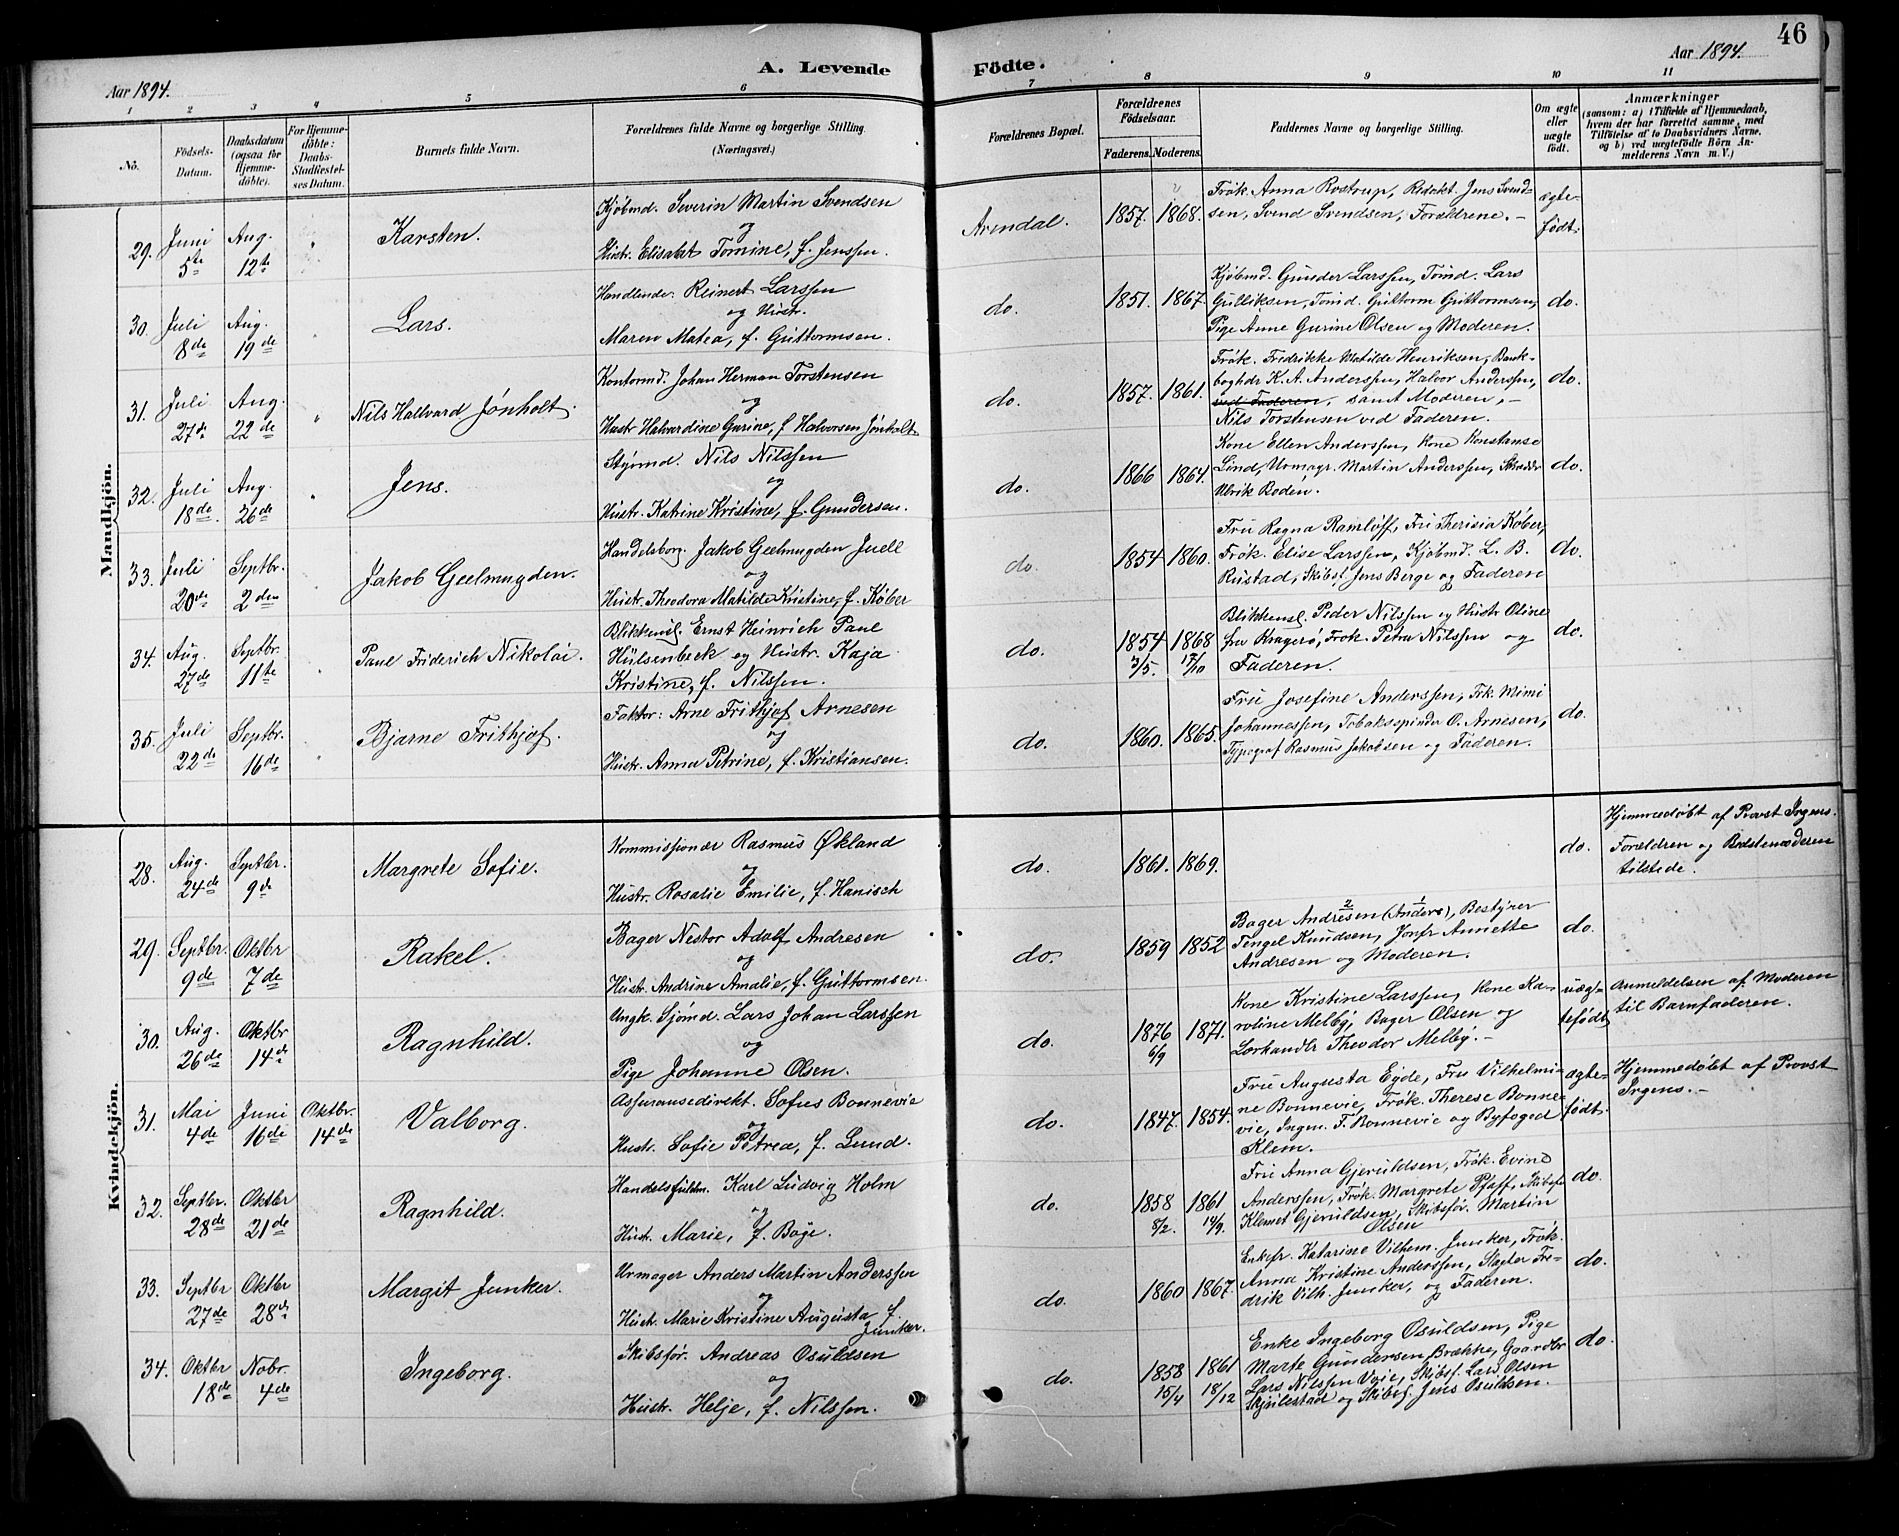 46
Aar 1894.
A. Levende Födte.
Aar 1894.
1 2 3 4 5 6 7 8 9 10 11
Nö.
Födsels-Datum.
Daabsdatum (ogsaa for Hjemmedöbte).
For Hjemmedöbte: Daabs-Stadfæstelses Datum.
Barnets fulde Navn.
Forældrenes fulde Navne og borgerlige Stilling. (Næringsvei.)
Forældrenes Bopæl.
Forældrenes Födselsaar.
Faderens. Moderens.
Faddernes Navne og borgerlige Stilling.
Om ægte eller uægte födt.
Anmærkninger
(saasom: a) i Tilfælde af Hjemmedaab, hvem der har forrettet samme, med Tilföielse af to Daabsvidners Navne, og b) ved uægtefödte Börn Anmelderens Navn m. V.)
Mandkjön.
29. Juni 5te Aug. 12te
Karsten.
Kjøbmd. Severin Martin Svendsen
og
Hustr. Elisabet Tomine, f. Jenssen.
Arendal.
1857. 1868.
Frøk. Anna Rostrup, Redakt. Jens Svend-
sen, Svend Svendsen, Forældrene. –
ægte-
født.
30. Juli 8de Aug. 19de
Lars.
Handlende Reinert Larssen
og Hustr.
Maren Matea, f. Guttormsen.
do.
1851. 1867.
Kjøbmd. Gunder Larssen, Tømd. Lars
Gulliksen, Tømd. Guttorm Guttormsen,
Pige Anne Gurine Olsen og Moderen.
do.
31. Juli 27de Aug. 22de
Nils Hallvard Jønholt.
Kontormd. Johan Herman Torstensen
og
Hustr Halvardine Gurine, f Halvorsen Jønholt
do.
1857. 1861.
Frøk. Fredrikke Matilde Henriksen, Bank-
boghdr K. A. Anderssen, Halvor Anderssen,
ved Faderen, samt Moderen, –
Nils Torstensen ved Faderen.
do.
32. Juli 18de. Aug. 26de
Jens.
Styrmd. Nils Nilssen
og
Hustr. Katrine Kristine, f. Gundersen.
do.
1866 1864.
Kone Ellen Anderssen, Kone Konstanse
Lind, Urmagr. Martin Anderssen, Skrædder
Ulrik Bodén.
do.
33. Juli 20de Septbr. 2den
Jakob Geelmuyden.
Handelsborg. Jakob Geelmuyden Juell
og
Hustr. Theodora Matilde Kristine, f. Køber
do.
1854 1860.
Fru Ragna Ramløff, Fru Therisia Køber,
Frøk. Elise Larssen, Kjøbmd. L. B.
Rustad, Skibsf. Jens Berge og Faderen
do.
34. Aug. 27de Septbr. 11te
Paul Friderich Nikolai.
Blikkensl. Ernst Heinrich Paul
Hülsenbeck og Hustr. Kaja
Kristine, f. Nilssen.
do.
1854 3/5. 1868 17/10
Blikkensl. Peder Nilssen og Hustr Oline
fra Kragerø, Frøk. Petra Nilssen og
Faderen.
do.
35. Juli 22de Septbr. 16de
Bjarne Frithjof.
Faktor: Arne Frithjof Arnesen
og
Hustr. Anna Petrine, f. Kristiansen.
do.
1860. 1865.
Fru Josefine Anderssen, Frk. Mimi
Johannessen, Tobaksspinder O. Arnesen,
Typograf Rasmus Jakobsen og Faderen.
do.
Kvindekjön.
28. Aug. 24de Septbr. 9de
Margrete Sofie.
Kommissionær Rasmus Økland
og
Hustr. Rosalie Emilie, f. Hanisch
do.
1861. 1869.
do.
Hjemmedøbt af Provst Irgens.
Forældren og Bedstemoderen
tilstede.
29. Septbr. 9de Oktbr 7de
Rakel.
Bager Nestor Adolf Andresen
og
Hustr. Andrine Amalie, f. Guttormsen
do.
1859 1852
Bager Andresen (Anders), Bestyrer
2 1
Tengel Knudsen, Jomfr Annette
Andresen og Moderen.
do.
30. Aug. 26de Oktbr 14de
Ragnhild.
Ungk. Sjømd. Lars Johan Larssen
og
Pige Johanne Olsen.
do.
1876 6/9 1871.
Kone Kristine Larssen, Kone Ka-
roline Melby, Bager Olsen og
Lærhandlr Theodor Melby. –
uæg-
tefødt
Anmeldelsen af Moderen
til Barnfaderen.
31. Mai 4de Juni 16de Oktbr. 14de
Valborg.
Assuransedirekt. Sofus Bonnevie
og
Hustr. Sofie Petrea, f. Lund.
do.
1847. 1854.
Fru Augusta Eyde, Fru Vilhelmi-
ne Bonnevie, Frøk. Therese Bonne-
vie, Ingen. F. Bonnevie og Byfoged
Klem.
ægte-
født.
Hjemmedøbt af Provst
Irgens. –
32. Septbr. 28de Oktbr 21de
Ragnhild.
Handelsfuldm. Karl Ludvig Holm
og
Hustr. Marie, f. Bøge.
do.
1858 8/2. 1861 14/9.
Fru Anna Gjeruldsen, Frøk. Evind
Anderssen, Frøk. Margrete Pfaff, Skibsfø
Klemet Gjeruldsen, Skibsfør. Martin
Olsen
do.
33. Septbr 27de Oktbr 28de
Margit Junker.
Urmager Anders Martin Anderssen
og
Hustr. Marie Kristine Augusta f.
Junker.
do.
1860 1867.
Enkefr. Katarine Vilhem. Junker, Frøk.
Anna Kristine Anderssen, Slagter Fre-
drik Vilh. Junker, og Faderen.
do.
34. Oktbr 18de Nobr. 4de
Ingeborg.
Skibsfør. Andreas Osuldsen
og
Hustr. Helje, f. Nilssen.
do.
1858 15/4 1861 18/12
Enke Ingeborg Osuldsen, Pige
Marte Gundersen Brække, Gaardbr
Lars Nilssen Voie, Skibsf. Lars Olsen
Skjulestad og Skibsf. Jens Osuldsen.
do.